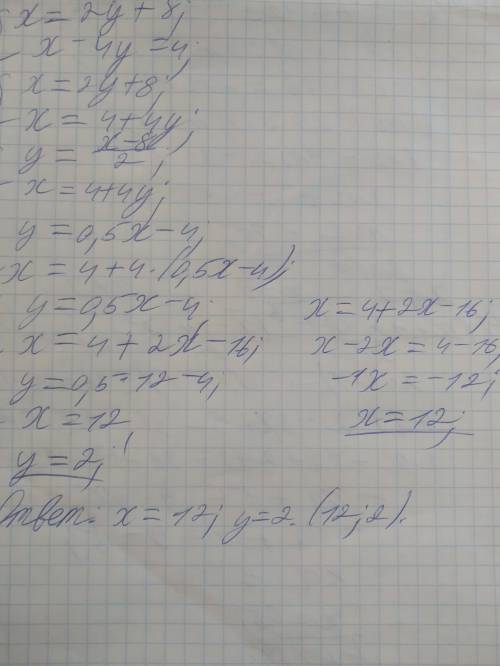 x = 2y + 8;
x - 4y = 4;
x = 2y + 8;
x = 4 + 4y;
y = \frac{x-8}{2};
x = 4 + 4y;
y = 0,5x - 4;
x = 4 + 4·(0,5x - 4);
y = 0,5x - 4;
x = 4 + 2x - 16;
y = 0,5·12 - 4;
x = 12
y = 2;
x = 4 + 2x - 16;
x - 2x = 4 - 16;
-1x = -12;
x = 12;
Ответ: x = 12; y = 2. (12; 2).